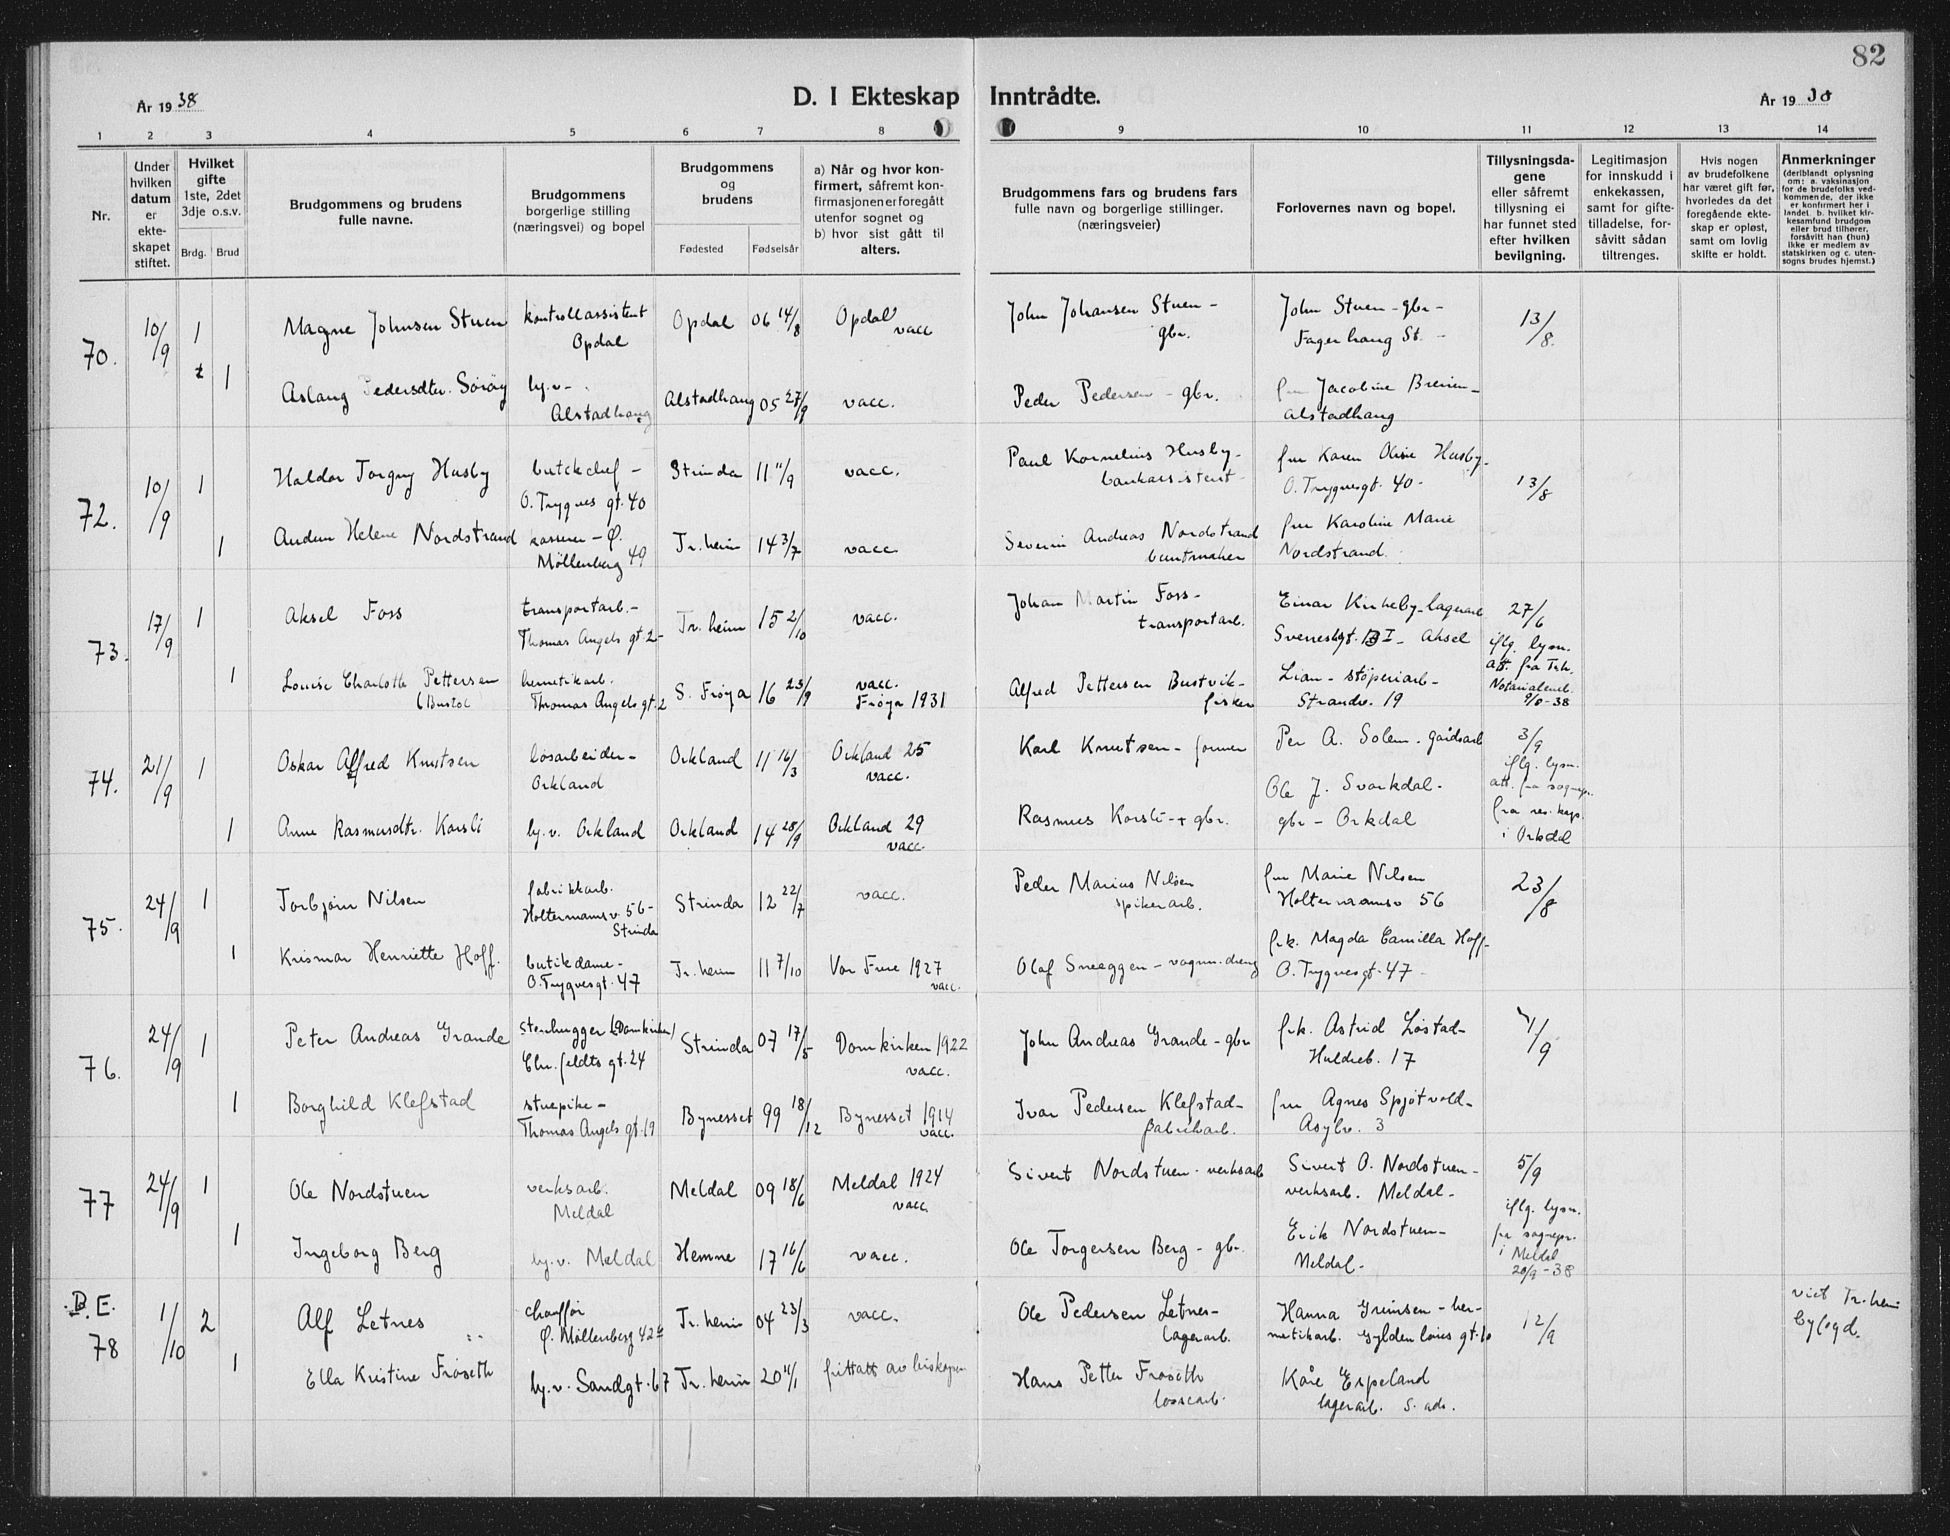 82
År 1938
D. I Ekteskap Inntrådte.
År 1938
1 2 3 4 5 6 7 8 9 10 11 12 13 14
Nr.
Under hvilken datum er ekte- skapet stiftet.
Hvilket gifte 1ste, 2det 3dje o.s.v.
Brdg. Brud
Brudgommens og brudens fulle navne.
Brudgommens borgerlige stilling (næringsvei) og bopel
Brudgommens og brudens
Fødested Fødselsår
a) Når og hvor kon- firmert, såfremt kon- firmasjonen er foregått utenfor sognet og b) hvor sist gått til alters.
Brudgommens fars og brudens fars fulle navn og borgerlige stillinger. (næringsveier)
Forlovernes navn og bopel.
Tillysningsda- gene eller såfremt tillysning ei har funnet sted efter hvilken bevilgning.
Legitimasjon for innskudd i enkekassen, samt for gifte- tilladelse, for- såvitt sådan tiltrenges.
Hvis nogen av brudefolkene har været gift før, hvorledes da det foregående ekte- skap er opløst, samt om lovlig skifte er holdt.
Anmerkninger (deriblandt oplysning om: a. vaksinasjon for de brudefolks ved- kommende, der ikke er konfirmert her i landet. b. hvilket kir- kesamfund brudgom eller brud tilhører, forsåvitt han (hun) ikke er medlem av statskirken og c. uten- sogns brudes hjemst.)
70. 10/9 1 Magne Johnsen Stuen kontrollassistent Opdal Opdal 06 14/8 Opdal vacc John Johansen Stuen - gbr. John Stuen - gbr - Fagerhaug St. - 13/8.
1 Aslaug Pedersdtr. Sørøy hj.v- Alstadhaug Alstadhaug 05 27/9 vacc. Peder Pedersen - gbr. fru Jacobine - Alstadhaug
72. 10/9 1 Haldor Torgny Husby butikchef - O. Trygves gt. 40 Strinda 11 11/9 vacc. Paul Kornelius Husby - bankassistent - fru Karen Oline Husby - O. Trygvesgt. 40 - 13/8
1 Helene Nordstrand kasserer - Ø. Møllenberg 49 Tr.heim 14 3/7 vacc. Severin Andreas Nordstrand buntmaker fru Karoline Marie Nordstrand.
73. 17/9 1 Aksel Foss transportarb. - Thomas Angels gt. 2 - Tr.heim 15 2/10 vacc. Johan Martin Foss - transportarb. Einar Kirkeby - lagerarb Sverresgt. 13 I - Aksel 27/6 iflg. lysn. att. fra Trh. Notarialemb. 9/8-38
1 Louise Charlotte Pettersen hermetikarb. Thomas Angels gt. 2 S. Frøya 16 23/9 vacc. Frøya 1931 Alfred Pettersen Bustvik - fisker Lian - støperiarb - Strandv. 19
74. 21/9 1 Oskar Alfred Knutsen løsarbeider - Orkland Orkland 11 16/3 Orkland 25 vacc. Karl Knutsen - former Per A. Solem - gårdsarb 3/9 iflg. lysn. att. fra sognepr. fra res. kap. i Orkdal
1 Anne Rasmusdtr. Korsli hj.v. Orkland Orkland 14 28/9 Orkland 29 vacc. Rasmus Korsli - + gbr. Ole J. Svorkdal - gbr - Orkdal
75. 24/9 1 Torbjørn Nilsen fabrikkarb. Holtermannsv. 56 - Strinda Strinda 12 22/7 vacc. Peder Marius Nilsen spikerarb. fru Marie Nilsen Holtermannsv 56 23/8
1 Krismar Henriette Hoff. butikdame - O. Trygvesgt. 47 Tr.heim 11 7/10 Vor Frue 1927 vacc. Olaf Sneeggen - vognm. dreng frk. Magda Camilla Hoff - O. Trygvesgt. 47 -
76. 24/9 1 Peter Andreas Grande stenhugger (Domkirken) Chr. Jeldts gt. 24 Strinda 07 17/5 Domkirken 1922 vacc. John Andreas Grande - gbr frk. Astrid Løstad - Huldreb. 17 1/9
1 Borghild Klefstad stuepike - Thomas Angels gt. 19 Bynesset 99 18/12 Bynesset 1914 vacc. Ivar Pedersen Klefstad - fabrikarb. fru Agnes Spjøtvold - Asylv. 3
77 24/9 1 Ole Nordstuen verksarb. Meldal Meldal 09 18/6 Meldal 1924 vacc. Sivert Nordstuen - verksarb Sivert O. Nordstuen - verksarb. Meldal - 5/9 iflg. lysn. fra sognepr. i Meldal 20/9-38
1 Ingeborg Berg hj.v. Meldal Hemne 17 16/6 vacc. Ole Torgersen Berg - gbr. Erik Nordstuen - Meldal -
B.E. 78 1/10 2 Alf Letnes chauffør Ø. Møllenberg 42 Tr.heim 04 23/3 vacc. Ole Pedersen Letnes - lagerarb. Hanna Grimsen - her- metikarb. Gyldenløves gt. 10 12/9 viet Tr.heim byfogd.
1 Ella Kristine Frøseth hj.v. Sandgt. 67 Tr.heim 20 11/1 frittatt av biskopen Hans Petter Frøseth lossearb. Kåre Espeland lagerarb. S. ads.